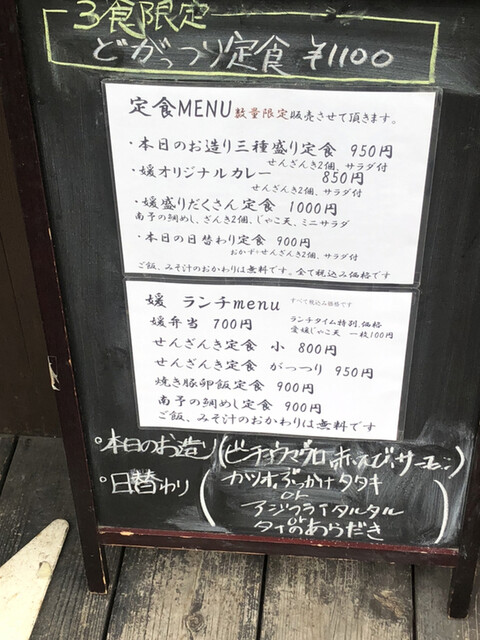 3食限定
どがっつり定食 ¥1100
定食MENU 数量限定販売させて頂きます。
・本日のお造り三種盛り定食 950円
せんざんき2個、サラダ付
・媛オリジナルカレー 850円
せんざんき2個、サラダ付
・媛盛りだくさん定食 1000円
南予の鯛めし、ざんき2個、じゃこ天、ミニサラダ
・本日の日替わり定食 900円
おかず+せんざんき2個、サラダ付
ご飯、みそ汁のおかわりは無料です。全て税込み価格です
媛 ランチmenu すべて税込み価格です
媛弁当 700円 ランチタイム特別価格
愛媛じゃこ天 一枚100円
せんざんき定食 小 800円
せんざんき定食 がっつり 950円
焼き豚卵飯定食 900円
南予の鯛めし定食 900円
ご飯、みそ汁のおかわりは無料です
○本日のお造り(ビンチョウマグロ 赤えび、サーモン)
○日替わり(カツオぶっかけタタキ
or
アジフライタルタル
or
タイのあらだき)